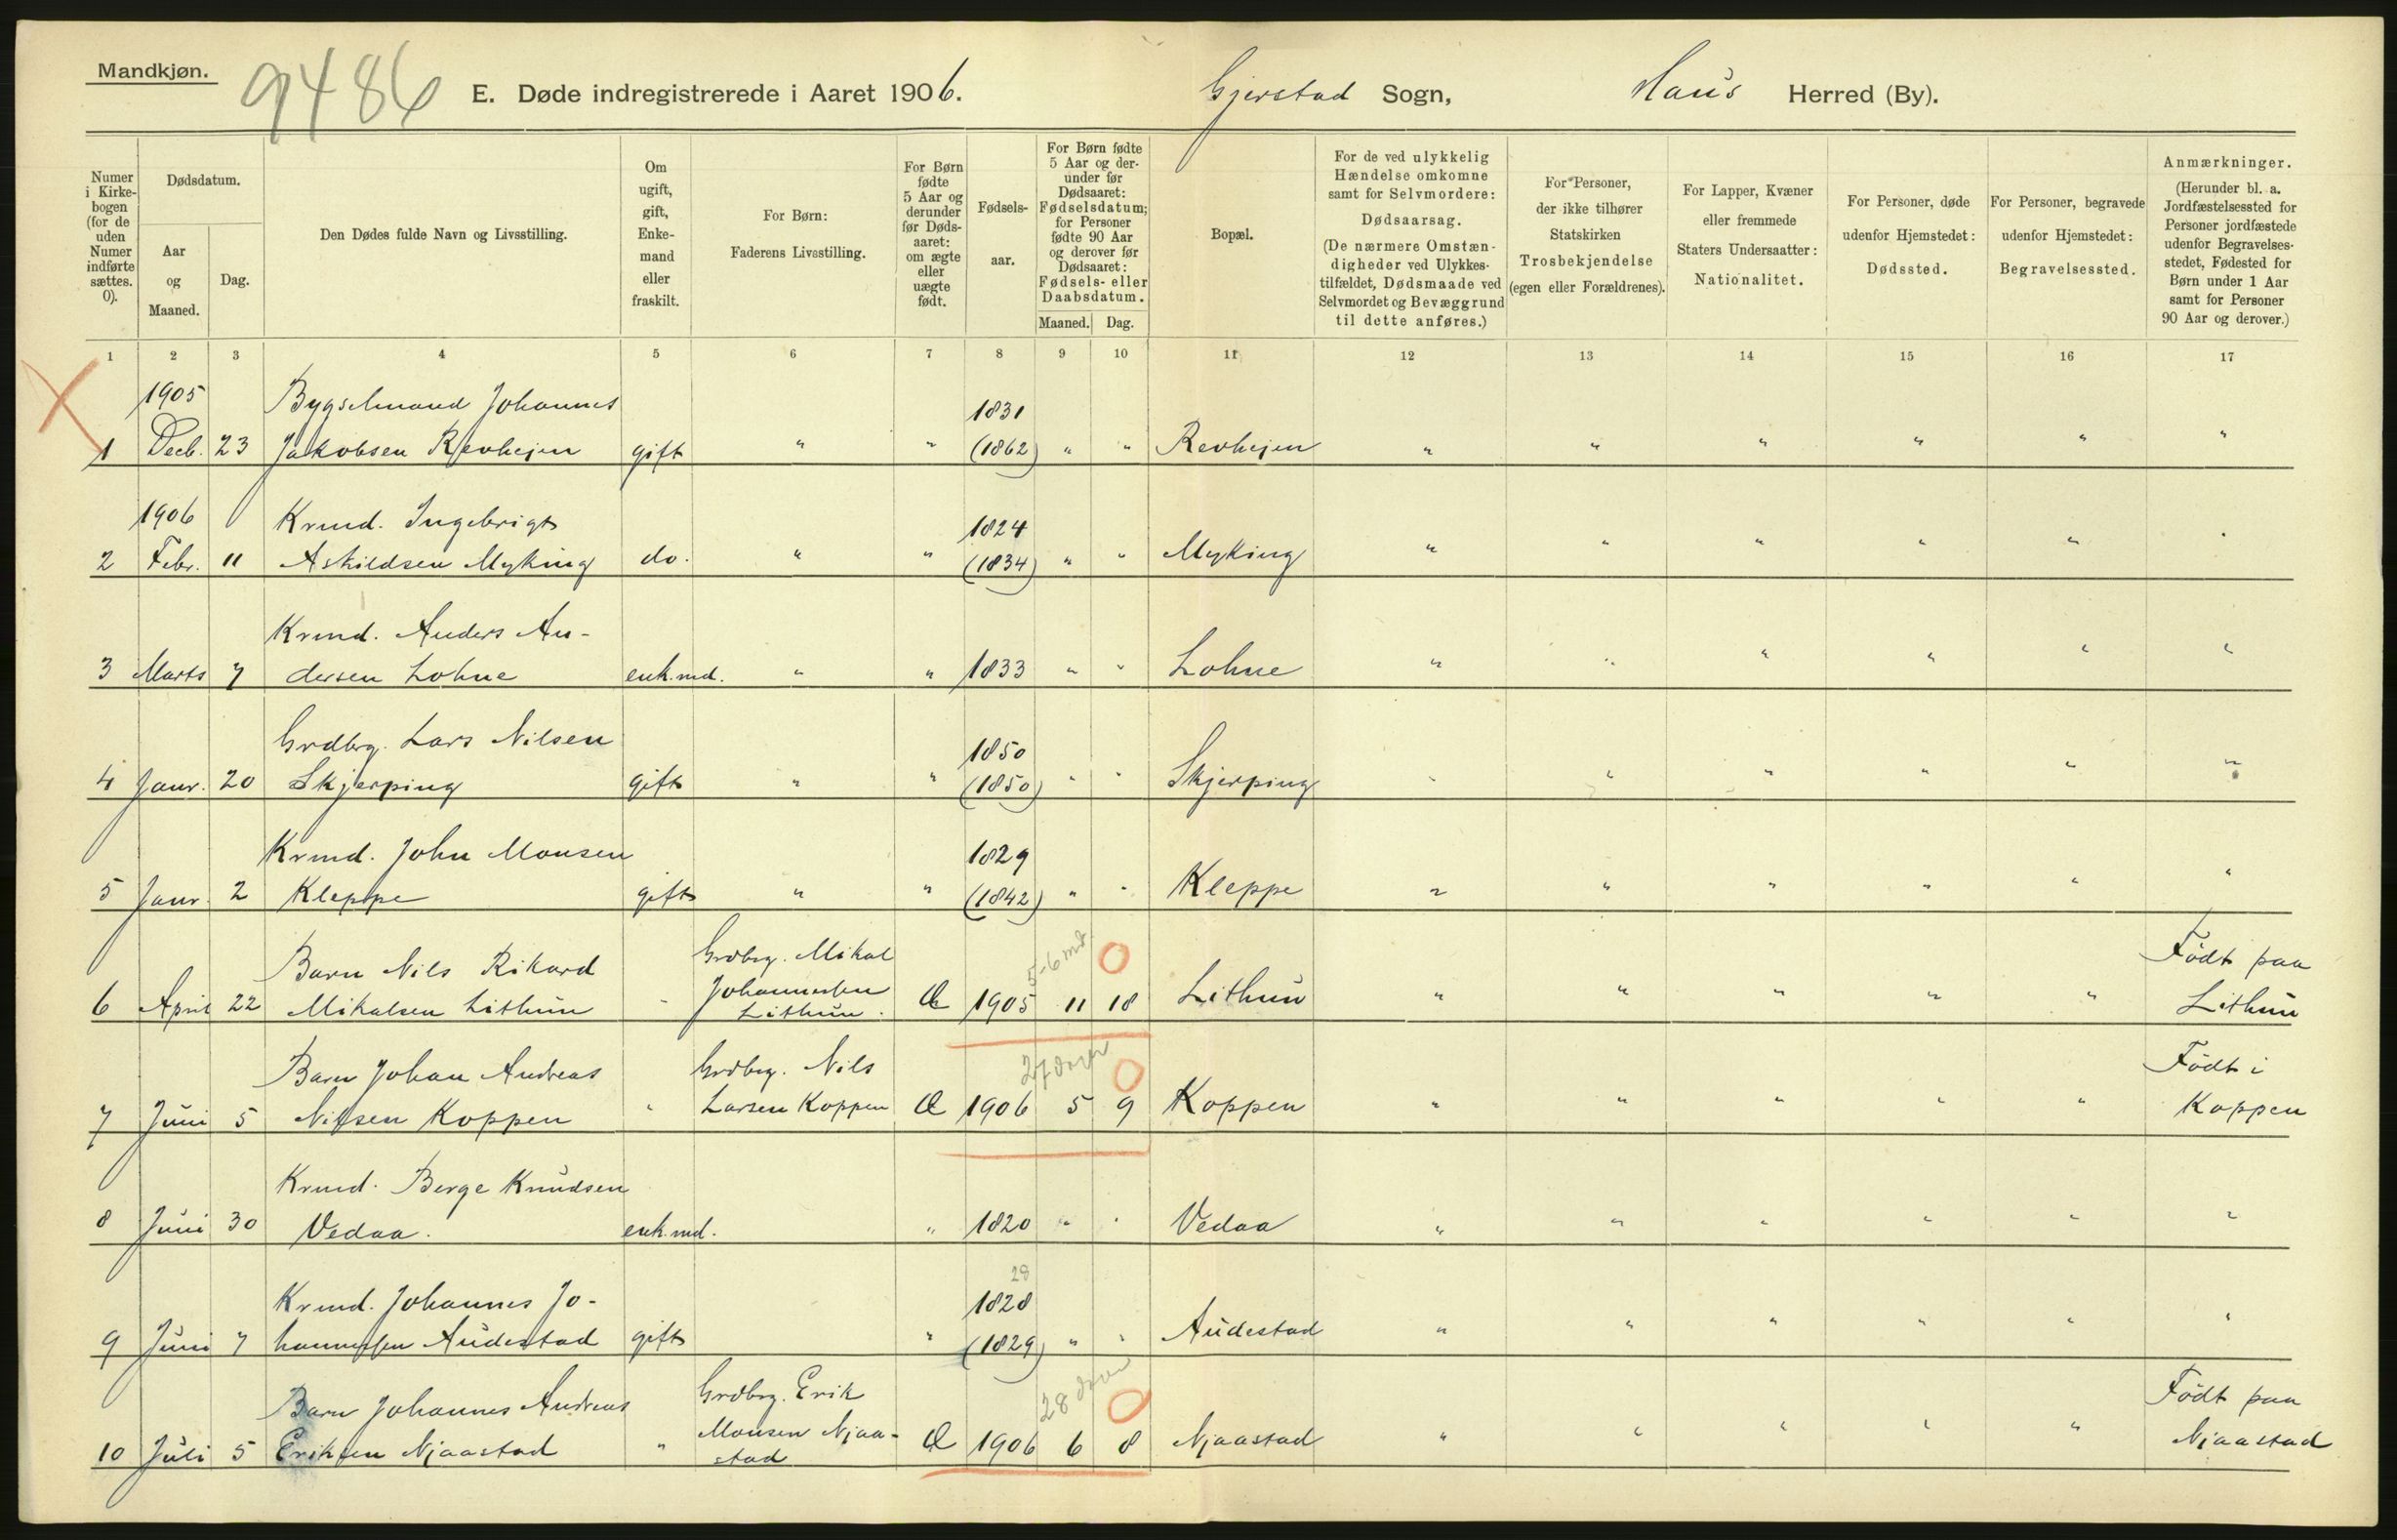 Mandkjøn.
9486
E. Døde indregistrerede i Aaret 1906.
Gjerstad Sogn,
Haus Herred (By).
Numer i Kirkebogen (for de uden Numer indførte sættes. 0).
Dødsdatum.
Aar og Maaned.
Dag.
Den Dødes fulde Navn og Livsstilling.
Om ugift, gift, Enkemand eller fraskilt.
For Børn: Faderens Livsstilling.
For Børn fødte 5 Aar og derunder før Dødsaaret: om ægte eller uægte født.
Fødselsaar.
For Børn fødte 5 Aar og derunder før Dødsaaret: Fødselsdatum; for Personer fødte 90 Aar og derover før Dødsaaret: Fødsels- eller Daabsdatum.
Maaned. Dag.
Bopæl.
For de ved ulykkelig Hændelse omkomne samt for Selvmordere: Dødsaarsag. (De nærmere Omstændigheder ved Ulykkestilfældet, Dødsmaade ved Selvmordet og Bevæggrund til dette anføres.)
For Personer, der ikke tilhører Statskirken Trosbekjendelse (egen eller Forældrenes).
For Lapper, Kvæner eller fremmede Staters Undersaatter: Nationalitet.
For Personer, døde udenfor Hjemstedet: Dødssted.
For Personer, begravede udenfor Hjemstedet: Begravelsessted.
Anmærkninger. (Herunder bl. a. Jordfæstelsessted for Personer jordfæstede udenfor Begravelsesstedet, Fødested for Børn under 1 Aar samt for Personer 90 Aar og derover.)
1 2 3 4 5 6 7 8 9 10 11 12 13 14 15 16 17
1905 Bygselmand Johannes 1831
1 Decb. 23 Jakobsen Revhejen gift " " (1862) " " Revhejen " " " " " "
1906 Krmd. Ingebrigt 1824
2 Febr. 11 Askildsen Myking do. " " (1834) " " Myking " " " " " "
Krmd. Anders An-
3 Marts 7 dersen Lohne enk.md. " " 1833 " " Lohne " " " " " "
Grdbrg. Lars Nilsen 1850
4 Janr. 20 Skjerping gift " " (1850) " " Skjerping " " " " " "
Krmd. John Monsen 1829
5 Janr. 2 Kleppe gift " " (1842) " " Kleppe " " " " " "
Barn Nils Rikard Grdbrg. Mikal 5-6 md. 0 Født paa
6 April 22 Mikalsen Lithun " Johannessen Lithun. Æ 1905 11 18 Lithun " " " " " Lithun
Barn Johan Andreas Grdbrg. Nils 27 dager 0 Født i
7 Juni 5 Nilsen Koppen " Larsen Koppen Æ 1906 5 9 Koppen " " " " " Koppen
Krmd. Berge Knudsen
8 Juni 30 Vedaa. enk.md. " 1820 " " Vedaa " " " " " "
28
Krmd. Johannes Jo- 1828
9 Juni 7 hannessen Audestad gift " (1829) " " Audestad " " " " " "
Barn Johannes Andreas Grdbrg. Erik 28 dager 0 Født paa
10 Juli 5 Eriksen Njaastad " Monsen Njaa- Æ 1906 6 8 Njaastad " " " " " Njaastad
stad